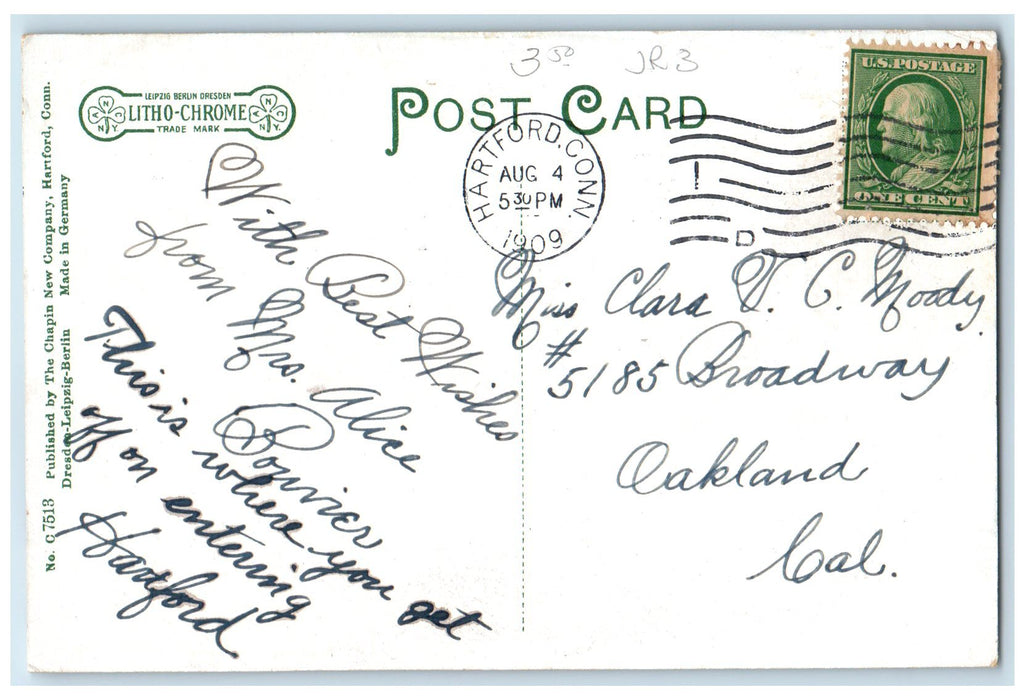 3 50 JR3
LEIPZIG BERLIN DRESDEN
LITHO-CHROME
TRADE MARK
N A N.Y.
N A N.Y.
POST CARD
HARTFORD, CONN.
AUG 4
5 30 PM
1909
D
U.S. POSTAGE
ONE CENT
No. C 7513 Published by The Chapin New Company, Hartford, Conn.
Dresden-Leipzig-Berlin Made in Germany
With Best Wishes
from Mrs. Alice
This is where you get
off on entering
Hartford
Miss Clara V. C. Moody.
# 5185 Broadway
Oakland
Cal.